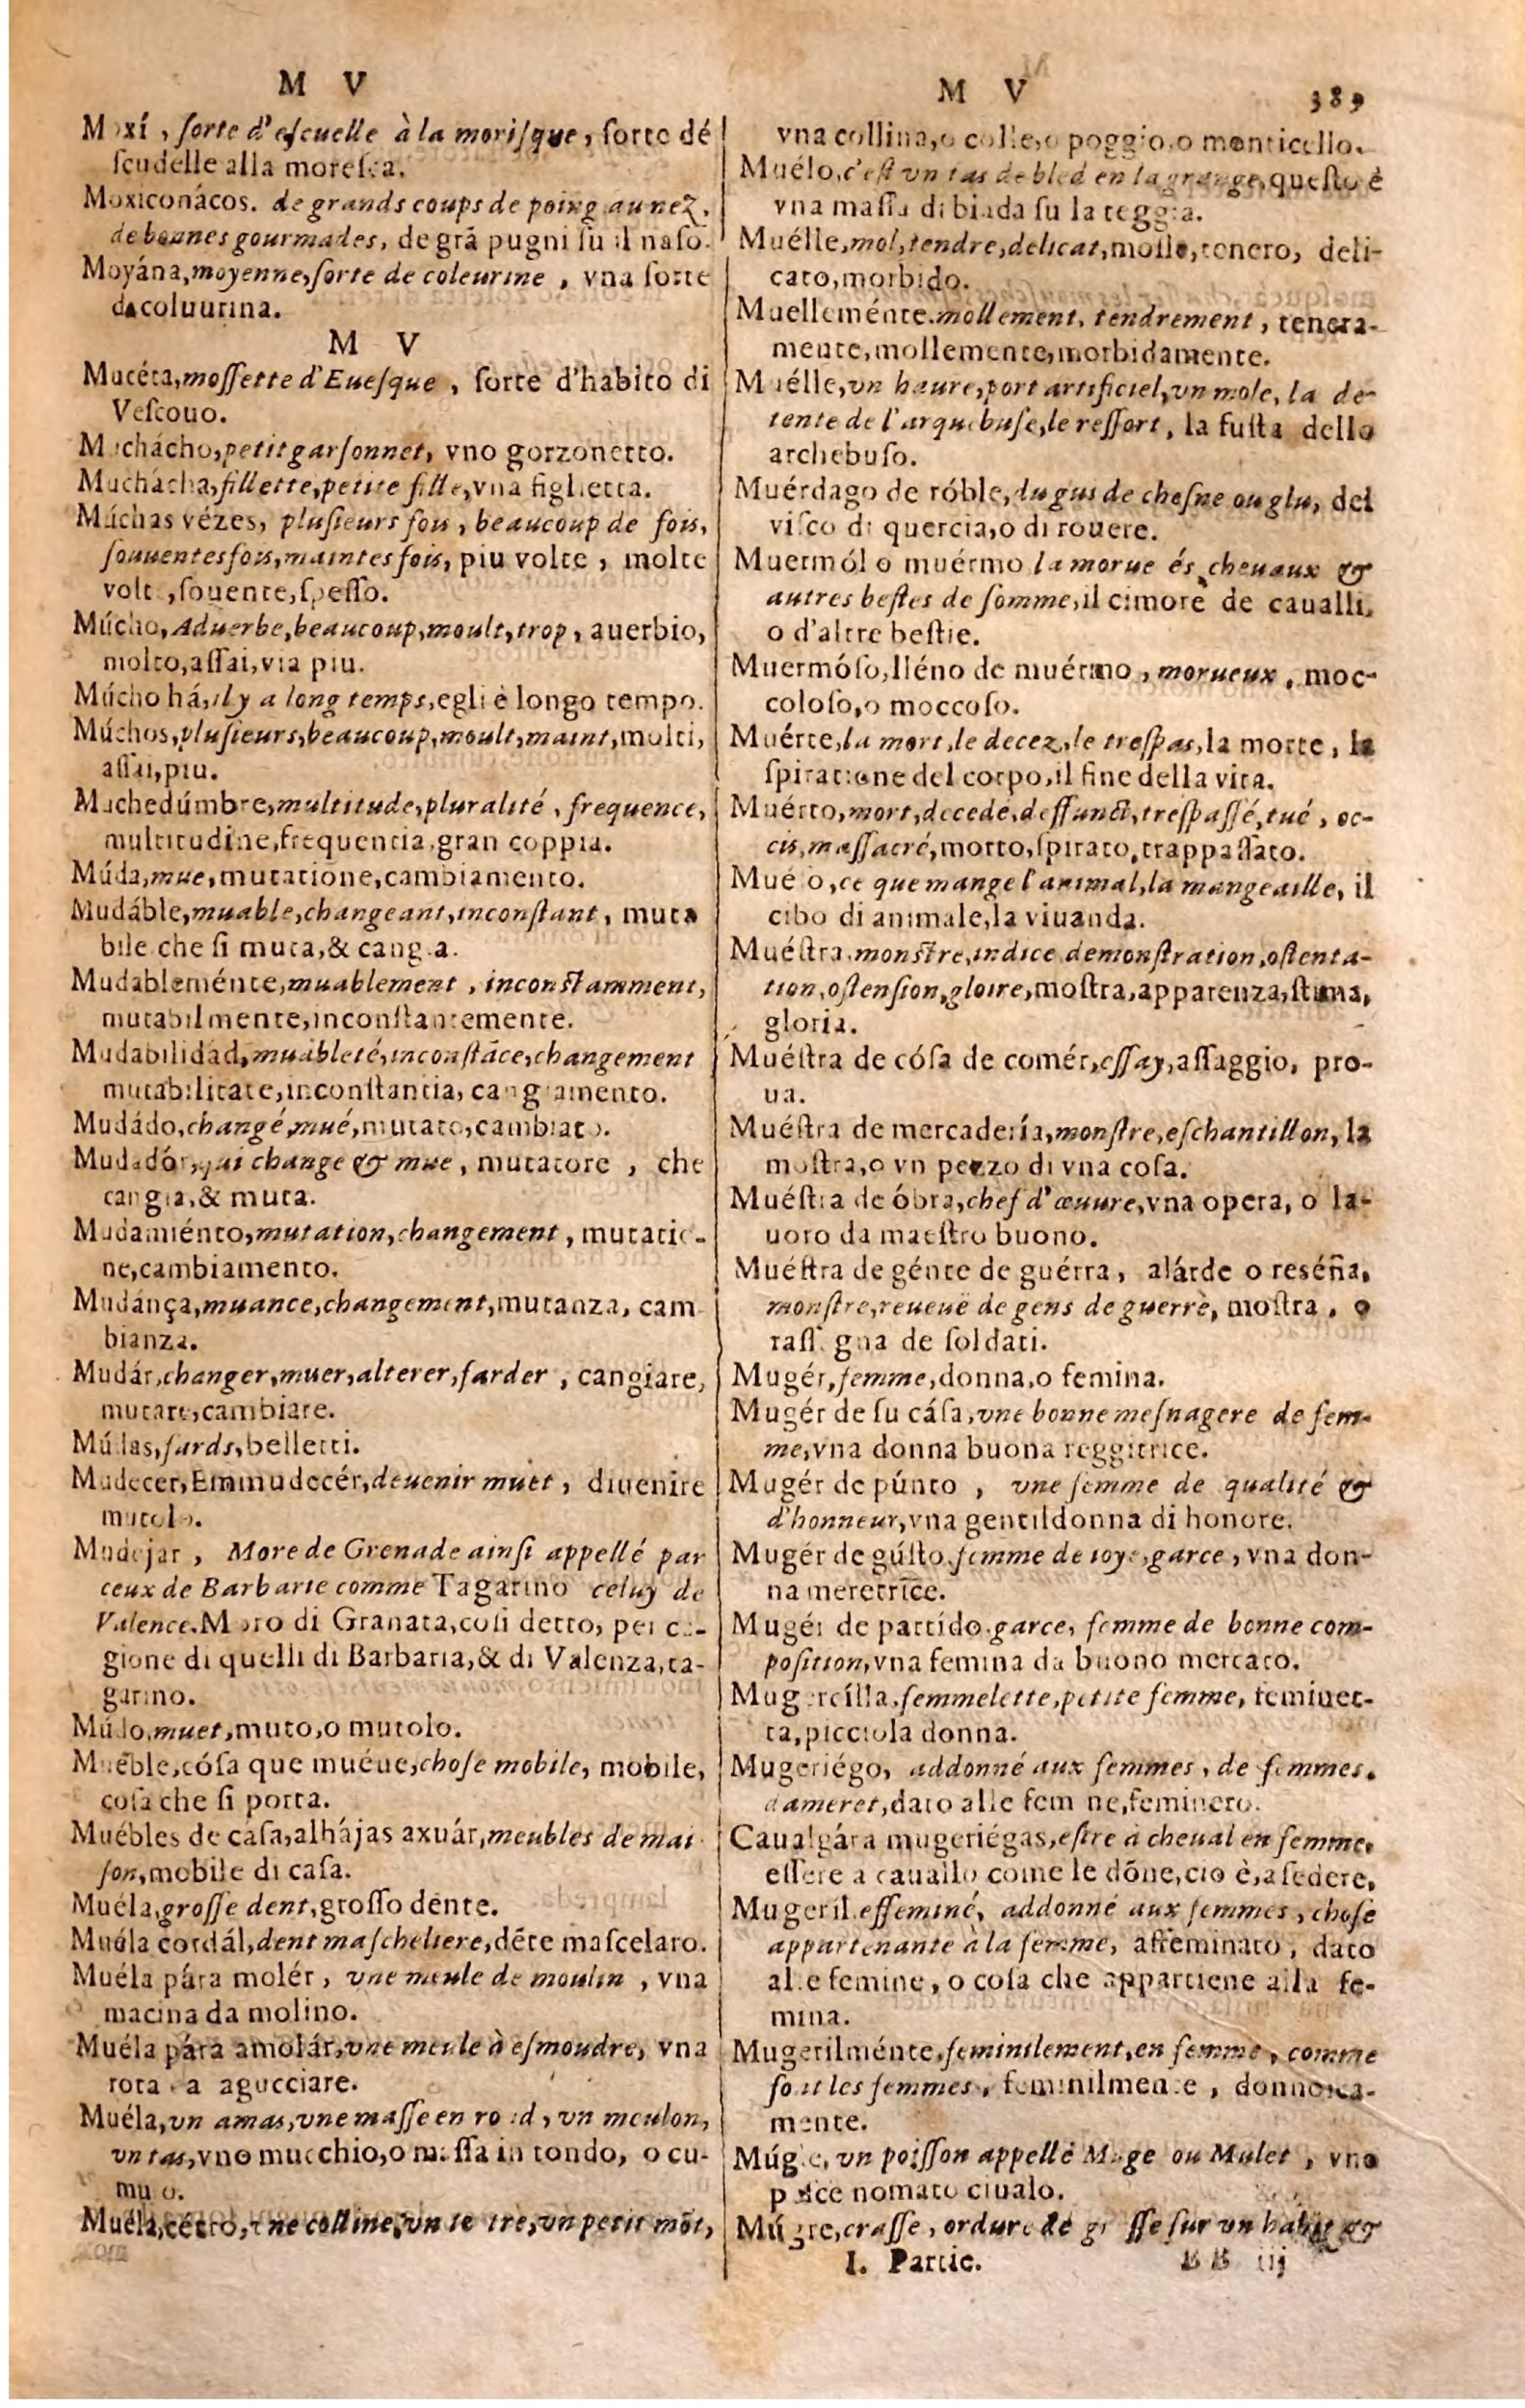 M V
Moxí, ſorte d'eſcuelle à la moriſque, ſorte dé
ſcudelle alla moreſca.
Moxiconácos. de grands coups de poing au nez,
de bonnes gourmades, de grā pugni ſu il naſo.
Moyána, moyenne, ſorte de coleurine, vna ſorte
da coluurina.
M V
Mucéta, moſſette d'Eueſque, ſorte d'habito di
Veſcouo.
Muchácho, petit garſonnet, vno gorzonetto.
Muchácha, fillette, petite fille, vna figlietta.
Múchas vézes, pluſieurs fois, beaucoup de fois,
ſouuentesfois, maintesfois, piu volte, molte
volte, ſouente, ſpeſſo.
Múcho, Aduerbe, beaucoup, moult, trop, auerbio,
molto, aſſai, via piu.
Múcho há, il y a long temps, egli è longo tempo.
Múchos, pluſieurs, beaucoup, moult, maint, molti,
aſſai, piu.
Muchedúmbre, multitude, pluralité, frequence,
multitudine, frequentia, gran coppia.
Múda, mue, mutatione, cambiamento.
Mudáble, muable, changeant, inconſtant, muta
bile che ſi muta, & cangia.
Mudableménte, muablement, inconſtamment,
mutabilmente, inconſtantemente.
Mudabilidád, muableté, inconſtāce, changement
mutabilitate, inconſtantia, cangiamento.
Mudádo, changé, mué, mutato, cambiato.
Mudadór, qui change & mue, mutatore, che
cangia, & muta.
Mudamiénto, mutation, changement, mutatio-
ne, cambiamento.
Mudánça, muance, changement, mutanza, cam
bianza.
Mudár, changer, muer, alterer, farder, cangiare,
mutare, cambiare.
Múdas, fards, belletti.
Mudecer, Emmudecér, deuenir muet, diuenire
mutolo.
Mudejar, More de Grenade ainſi appellé par
ceux de Barbarie comme Tagarino celuy de
Valence. Moro di Granata, coſi detto, per ca-
gione di quelli di Barbaria, & di Valenza, ta-
garino.
Múdo, muet, muto, o mutolo.
Muéble, cóſa que muéue, choſe mobile, mobile,
coſa che ſi porta.
Muébles de cáſa, alhájas axuár, meubles de mai
ſon, mobile di caſa.
Muéla, groſſe dent, groſſo dente.
Muéla cordál, dent maſcheliere, dēte maſcelaro.
Muéla pára molér, vne meule de moulin, vna
macina da molino.
Muéla pára amolár, vne meule à eſmoudre, vna
rota a agucciare.
Muéla, vn amas, vne maſſe en rond, vn meulon,
vn tas, vno mucchio, o maſſa in tondo, o cu-
mulo.
Muéla, cérro, vne colline, vn tertre, vn petit mōt,
M V 389
vna collina, o colle, o poggio, o monticello.
Muélo, c'eſt vn tas de bled en la grange, queſto è
vna maſſa di biada ſu la teggia.
Muélle, mol, tendre, delicat, molle, tenero, deli-
cato, morbido.
Muelleménte. mollement, tendrement, tenera-
mente, mollemente, morbidamente.
Muélle, vn haure, port artificiel, vn mole, la de-
tente de l'arquebuſe, le reſſort, la fuſta dello
archebuſo.
Muérdago de róble, du gui de cheſne ou glu, del
viſco di quercia, o di rouere.
Muermól o muérmo la morue és cheuaux &
autres beſtes de ſomme, il cimore de caualli,
o d'altre beſtie.
Muermóſo, lléno de muérmo, morueux, moc-
coloſo, o moccoſo.
Muérte, la mort, le decez, le treſpas, la morte, la
ſpiratione del corpo, il fine della vita.
Muérto, mort, decedé, deffunct, treſpaſſé, tué, oc-
cis, maſſacré, morto, ſpirato, trappaſſato.
Mué o, ce que mange l'animal, la mangeaille, il
cibo di animale, la viuanda.
Muéſtra, monſtre, indice demonſtration, oſtenta-
tion, oſtenſion, gloire, moſtra, apparenza, ſtima,
gloria.
Muéſtra de cóſa de comér, eſſay, aſſaggio, pro-
ua.
Muéſtra de mercadería, monſtre, eſchantillon, la
moſtra, o vn pezzo di vna coſa.
Muéſtra de óbra, chef d'œuure, vna opera, o la-
uoro da maeſtro buono.
Muéſtra de génte de guérra, alárde o reséña,
monſtre, reueuë de gens de guerrè, moſtra, o
raſſegna de ſoldati.
Mugér, femme, donna, o femina.
Mugér de ſu cáſa, vne bonne meſnagere de fem-
me, vna donna buona reggitrice.
Mugér de púnto, vne femme de qualité &
d'honneur, vna gentildonna di honore.
Mugér de gúſto, femme de ioye, garce, vna don-
na meretrice.
Mugér de partído. garce, femme de bonne com-
poſition, vna femina da buono mercato.
Mugercílla, femmelette, petite femme, feminet-
ta, picciola donna.
Mugeriégo, addonné aux femmes, de femmes.
dameret, dato alle femine, feminero.
Caualgára mugeriégas, eſtre à cheual en femme,
eſſere a cauallo come le dōne, cio è, a ſedere.
Mugeríl. effeminé, addonné aux femmes, choſe
appartenante à la femme, affeminato, dato
alle femine, o coſa che appartiene alla fe-
mina.
Mugerilménte, feminilement, en femme, comme
font les femmes, feminilmente, donneſca-
mente.
Múgle, vn poiſſon appellé Muge ou Mulet, vno
peſce nomato ciualo.
Múgre, craſſe, ordure de graiſſe ſur vn habit &
I. Partie. BB iij